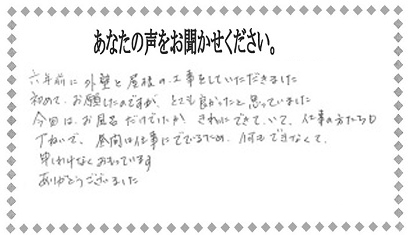 あなたの声をお聞かせください。
六年前に外壁と屋根の工事をしていただきました
初めて、お願したのですが、とても良かったと思っていました
今回は、お風呂だけでしたが、きれいにできていて、仕事の方たちも
丁ねいで、昼間は仕事にでているため、何もできなくて、
申しわけなくおもっています
ありがとうございました